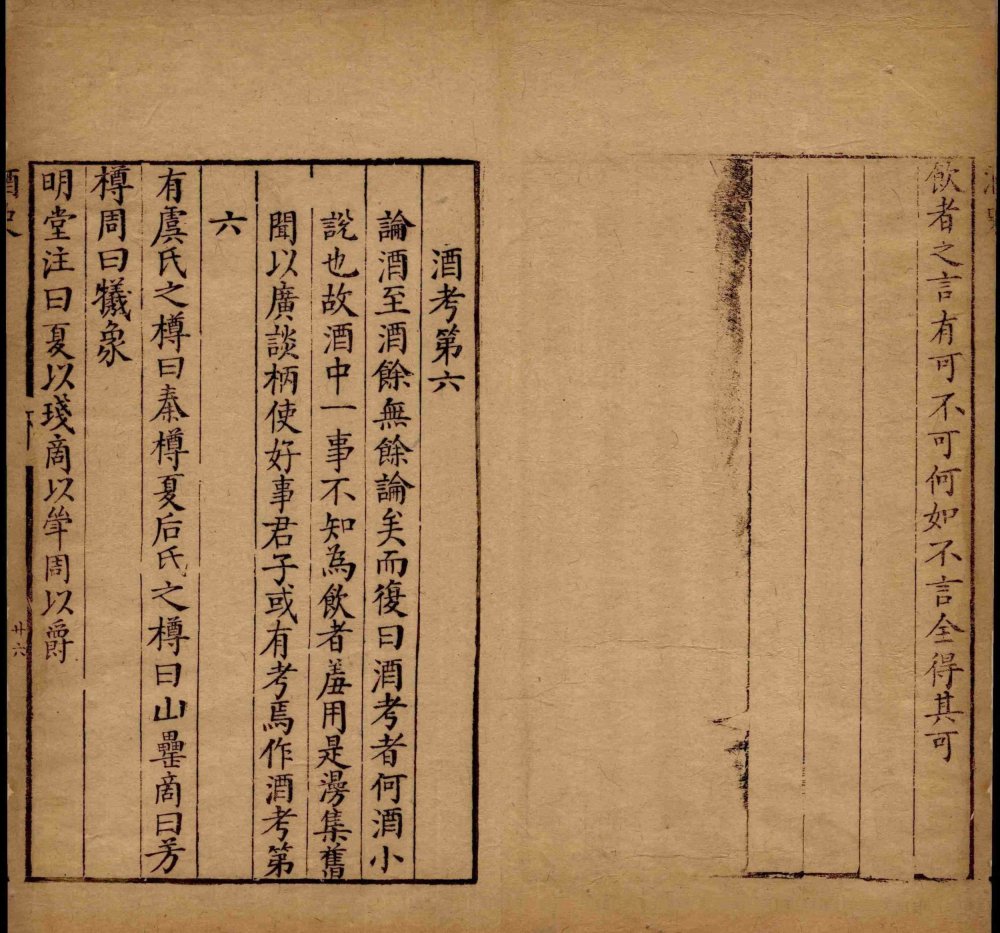 飲者之言有可不可何如不言全得其可
酒考第六
論酒至酒餘無餘論矣而復曰酒考者何酒小
說也故酒中一事不知為飲者羞用是漫集舊
聞以廣談柄使好事君子或有考焉作酒考第
六
有虞氏之樽曰泰樽夏后氏之樽曰山罍商曰著
樽周曰犧象
明堂注曰夏以琖商以斝周以爵
酒史
廿六